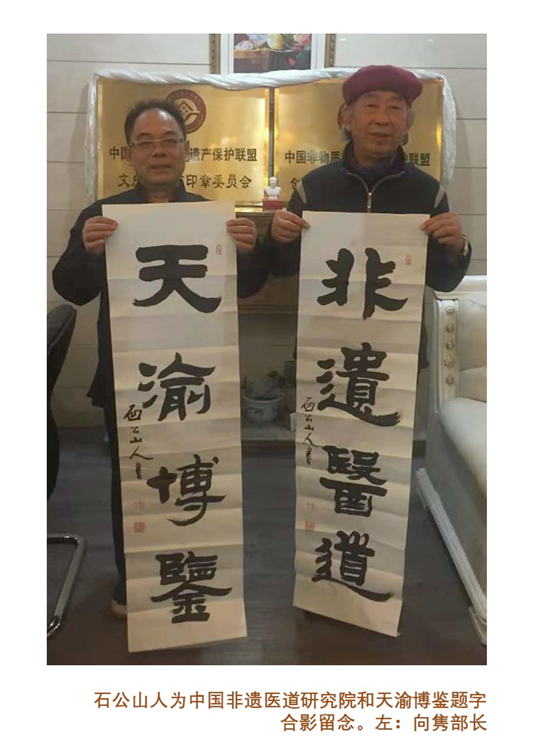 中国 遗产保护联盟
印章委员会
中国非物质 护联盟
天渝博鑒
石公山人書
非遺醫道
石公山人書
石公山人为中国非遗医道研究院和天渝博鉴题字
合影留念。左：向隽部长